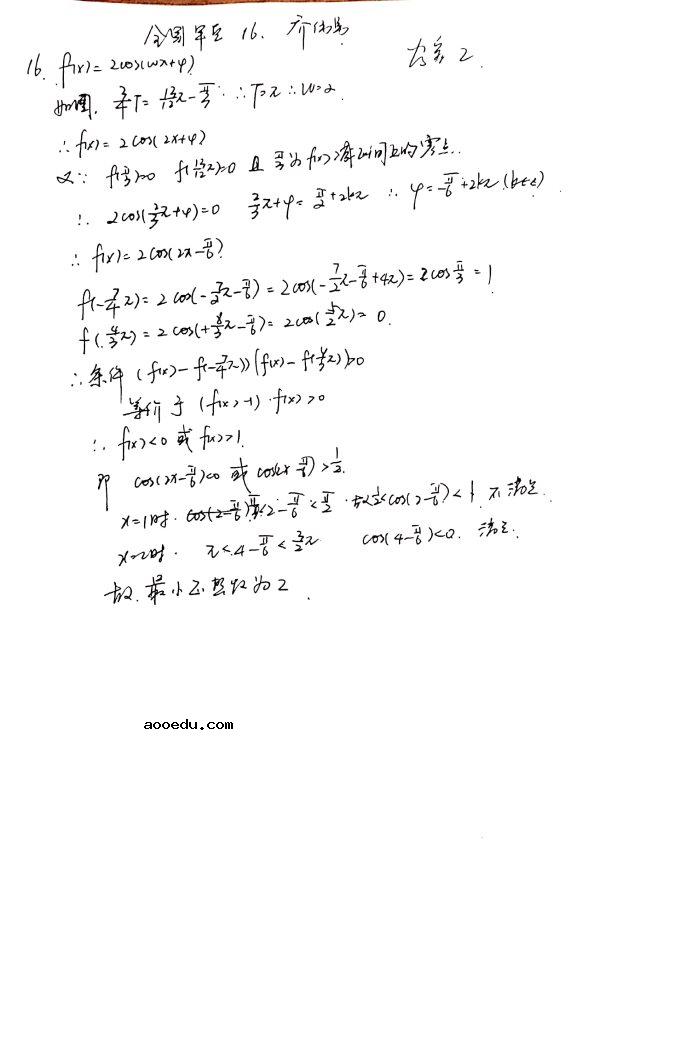 全国 16.
答案 2.
16. f(x)=2cos(wx+φ)
如图. 3/4 T= 13/12 π - π/3 ∴ T=π ∴ w=2
∴ f(x)=2cos(2x+φ)
又∵ f(π/3)=0 f(13/12 π)=0 且 π/3 为 f(x) 区间上的零点.
∴ 2cos(2/3 π+φ)=0 2/3 π+φ= π/2 +2kπ ∴ φ= - π/6 +2kπ (k∈z)
∴ f(x)=2cos(2x- π/6)
f(- 7/4 π)= 2cos(- 7/2 π - π/6) = 2cos(- 7/2 π - π/6 +4π)= 2cos π/3 = 1
f(4/3 π) = 2cos(+ 8/3 π - π/6)= 2cos(5/2 π)= 0.
∴ 条件 (f(x)-f(- 7/4 π))(f(x)-f(4/3 π))>0
等价于 (f(x)-1)·f(x)>0
∴ f(x)<0 或 f(x)>1.
即 cos(2x- π/6)<0 或 cos(2x- π/6) > 1/2.
x=1时. 2- π/6 < π/2 故 1/2<cos(2- π/6)<1 不满足.
x=2时. π<4- π/6 < 3/2 π cos(4- π/6)<0. 满足.
故. 最小正整数为2.
aooedu.com